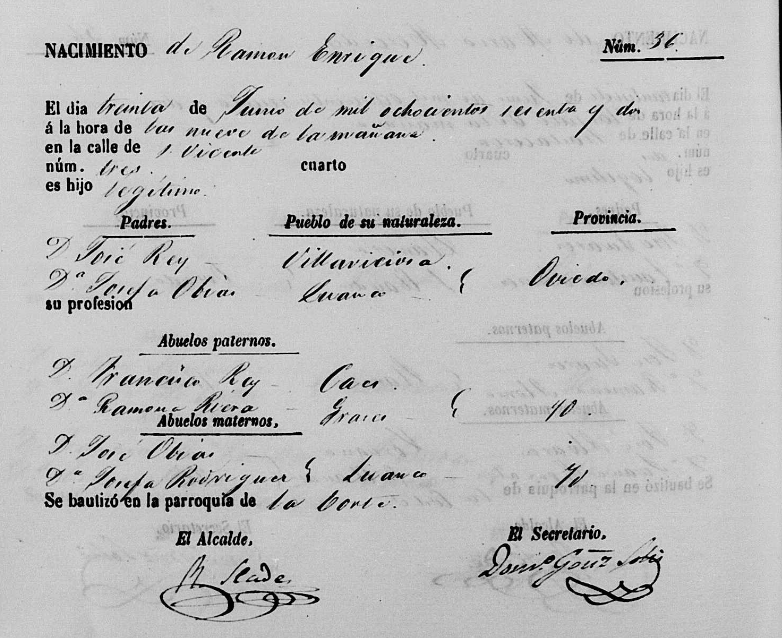 NACIMIENTO de Ramon Enrique. Núm. 36.
El dia treinta de Junio de mil ochocientos sesenta y dos
á la hora de las nueve de la mañana.
en la calle de S. Vicente
núm. tres. cuarto
es hijo legitimo.
Padres. Pueblo de su naturaleza. Provincia.
D. José Rey Villaviciosa.
Dª Josefa Obias Luanco Oviedo.
su profesion
Abuelos paternos.
D. Francisco Rey
Dª Ramona Riera
Abuelos maternos.
D. José Obias
Dª Josefa Rodriguez Luanco
Se bautizó en la parroquia de la Corte.
El Alcalde, El Secretario,